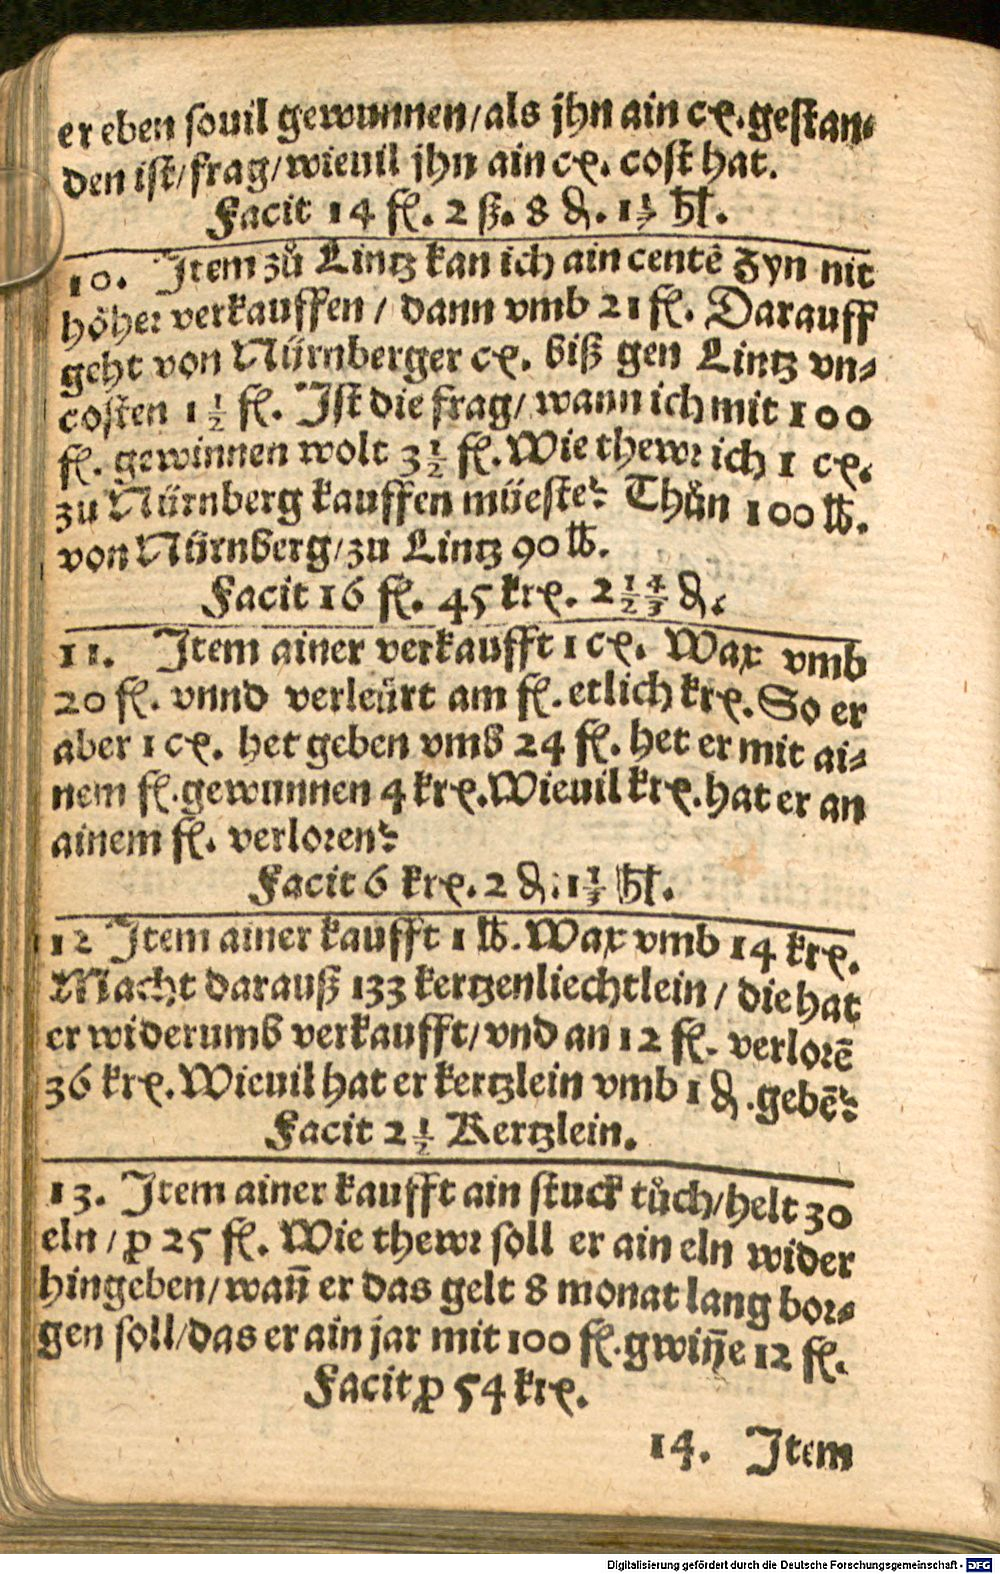 er eben souil gewunnen/als jhn ain cꝛ. gestan⸗
den ist/frag/wieuil jhn ain cꝛ. cost hat.
Facit 14 fl. 2 ß. 8 ₰. 1 1/3 hl.
10. Item zů Lintz kan ich ain centē Zyn nit
höher verkauffen / dann vmb 21 fl. Darauff
geht von Nürnberger cꝛ. biß gen Lintz vn⸗
costen 1 1/2 fl. Ist die frag/ wann ich mit 100
fl. gewinnen wolt 3 1/2 fl. Wie thewꝛ ich 1 cꝛ.
zu Nürnberg kauffen müeste? Thůn 100 ℔.
von Nürnberg/zu Lintz 90 ℔.
Facit 16 fl. 45 krꝛ. 2 14/23 ₰.
11. Item ainer verkaufft 1 cꝛ. Wax vmb
20 fl. vnnd verleürt am fl. etlich krꝛ. So er
aber 1 cꝛ. het geben vmb 24 fl. het er mit ai⸗
nem fl. gewunnen 4 krꝛ. Wieuil krꝛ. hat er an
ainem fl. verloꝛen?
Facit 6 krꝛ. 2 ₰. 1 1/3 hl.
12 Item ainer kaufft 1 ℔. Wax vmb 14 krꝛ.
Macht darauß 133 kertzenliechtlein / die hat
er widerumb verkaufft/vnd an 12 fl. verloꝛē
36 krꝛ. Wieuil hat er kertzlein vmb 1 ₰. gebē?
Facit 2 1/2 Kertzlein.
13. Item ainer kaufft ain stuck tůch/helt 30
eln / ꝑ 25 fl. Wie thewꝛ soll er ain eln wider
hingeben/wañ er das gelt 8 monat lang boꝛ⸗
gen soll/das er ain jar mit 100 fl. gwiñe 12 fl.
Facit ꝑ 54 krꝛ.
14. Item
Digitalisierung gefördert durch die Deutsche Forschungsgemeinschaft - DFG